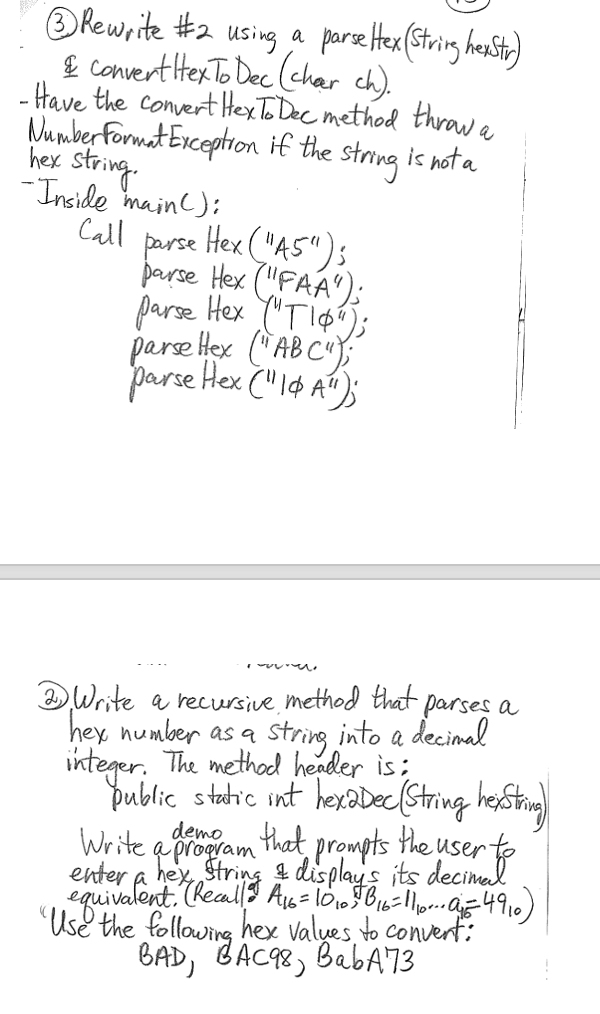 ③ Rewrite #2 using a parseHex(String hexStr)
& convertHexToDec(char ch).
- Have the convertHexToDec method throw a
NumberFormatException if the string is not a
hex string.
- Inside main():
Call parseHex("A5");
parseHex("FAA");
parseHex("T1Ø");
parseHex("ABC");
parseHex("1ØA");
② Write a recursive method that parses a
hex number as a string into a decimal
integer. The method header is:
public static int hex2Dec(String hexString)
Write a demo program that prompts the user to
enter a hex string & displays its decimal
equivalent. (Recall: A₁₆=10₁₀, B₁₆=11₁₀...a₁₆=49₁₀)
Use the following hex values to convert:
BAD, BAC98, BabA73